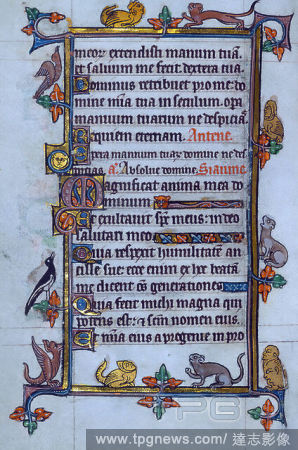 meor extendisti manum tuā.
et saluum me fecit dextera tua.
Dominus retribuet pro me do
mine mīa tua in seculum. opa
manuum tuarum ne despicias.
Requiem eternam. Antene.
Opera manuum tuarz domine ne des
a. Absolue domine.
Magnificat anima mea do
minum
Et exultauit sp̄s meus: in deo
salutari meo
Quia respexit humilitatē an
cille sue: ecce enim ex hȳ beatā
me dicent om̄s generationes
Quia fecit michi magna qui
potens est: & sc̄m nomen eius.
Et mīa eius a progenie in pro
PG
www.tpgnews.com/ 達志影像